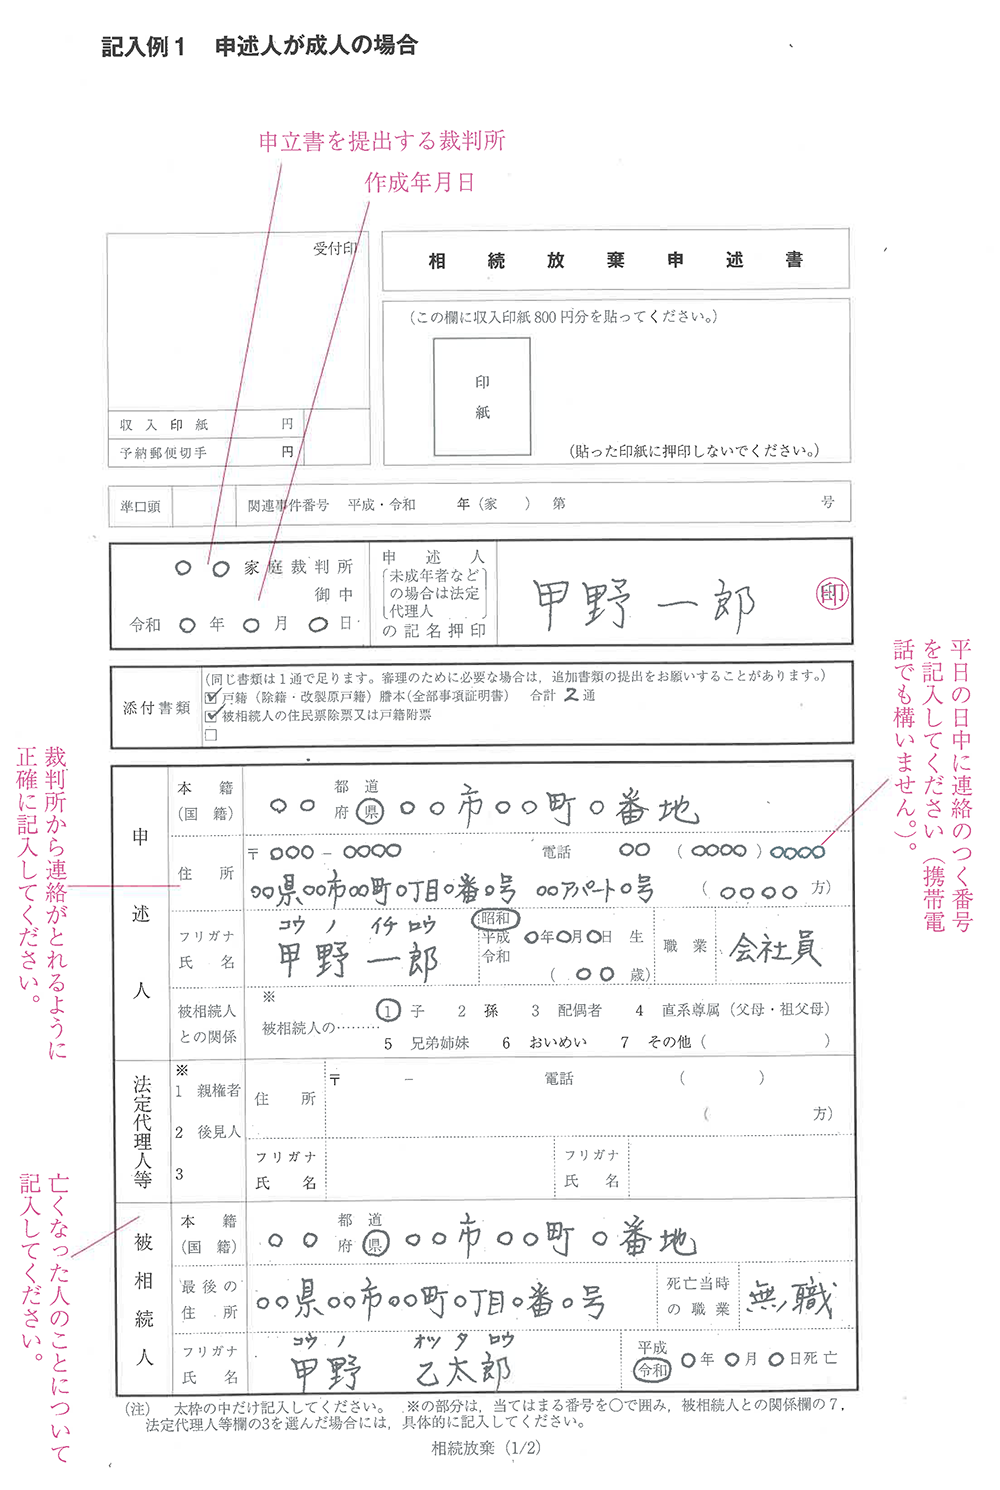 記入例1　申述人が成人の場合
申立書を提出する裁判所
作成年月日
受付印
相続放棄申述書
(この欄に収入印紙800円分を貼ってください。)
印
紙
(貼った印紙に押印しないでください。)
収入印紙　円
予納郵便切手　円
準口頭　関連事件番号　平成・令和　年(家　)第　号
○○家庭裁判所
御中
令和○年○月○日
申述人
未成年者など
の場合は法定
代理人
の記名押印
甲野一郎　印
添付書類
(同じ書類は1通で足ります。審理のために必要な場合は，追加書類の提出をお願いすることがあります。)
☑戸籍(除籍・改製原戸籍)謄本(全部事項証明書)　合計2通
☑被相続人の住民票除票又は戸籍附票
□
平日の日中に連絡のつく番号
を記入してください(携帯電
話でも構いません。)。
裁判所から連絡がとれるように
正確に記入してください。
申述人
本籍
(国籍)
○○　都道府県　○○市○○町○番地
住所
〒○○○－○○○○　電話　○○(○○○○)○○○○
○○県○○市○○町○丁目○番○号　○○アパート○号　(○○○○方)
フリガナ　コウノ　イチロウ
氏名　甲野一郎
昭和
平成　○年○月○日生
令和
(○○歳)
職業　会社員
被相続人
との関係
※
被相続人の………
1 子　2 孫　3 配偶者　4 直系尊属(父母・祖父母)
5 兄弟姉妹　6 おいめい　7 その他(　)
法定代理人等
※
1 親権者
2 後見人
3
住所
〒　－　電話　(　)
(　方)
フリガナ
氏名
フリガナ
氏名
亡くなった人のことについて
記入してください。
被相続人
本籍
(国籍)
○○　都道府県　○○市○○町○番地
最後の
住所
○○県○○市○○町○丁目○番○号
死亡当時
の職業
無職
フリガナ　コウノ　オツタロウ
氏名　甲野　乙太郎
平成
令和　○年○月○日死亡
(注)　太枠の中だけ記入してください。　※の部分は，当てはまる番号を○で囲み，被相続人との関係欄の7，
法定代理人等欄の3を選んだ場合には，具体的に記入してください。
相続放棄(1/2)